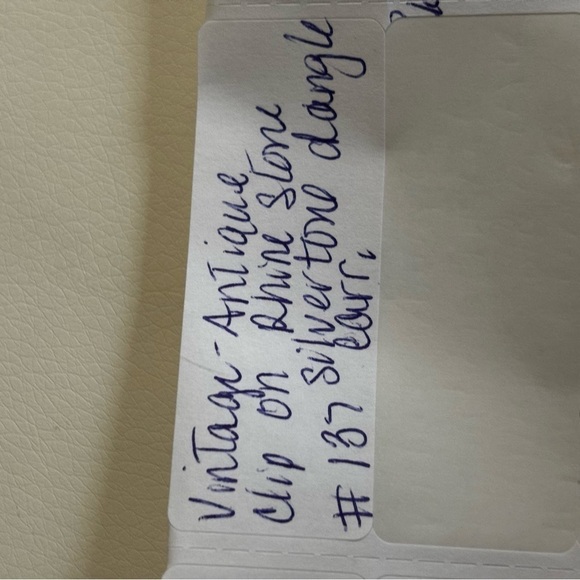 Vintage-Antique
Clip on Rhine Stone
# 137 Silvertone dangle
earr.